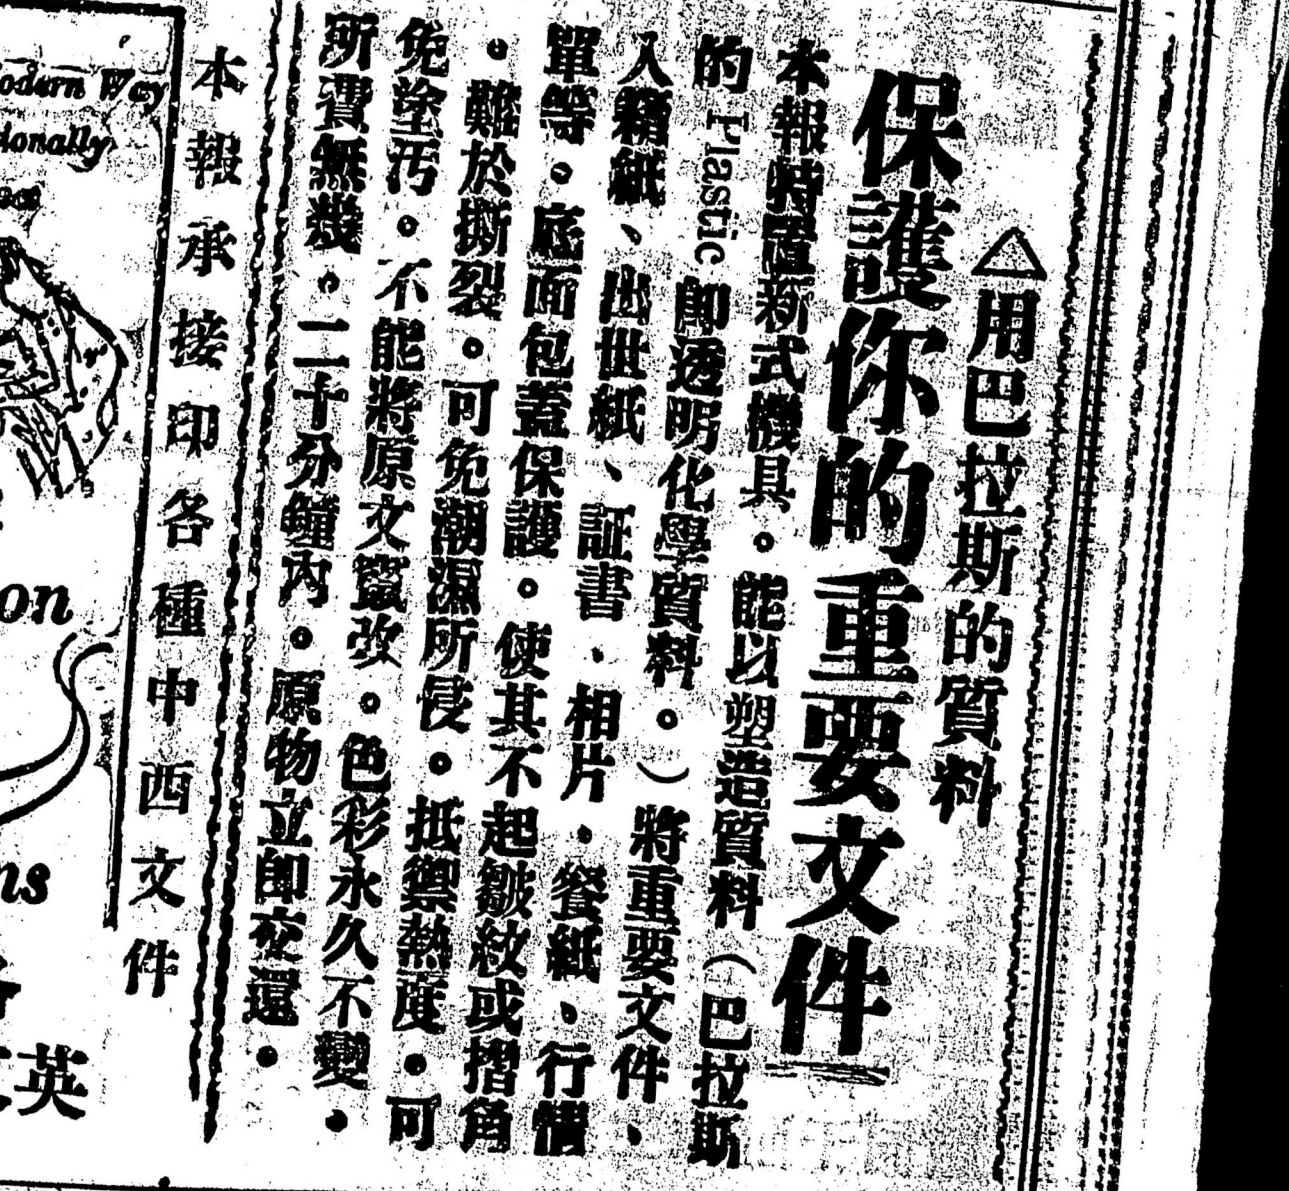 △用巴拉斯的質料
保護你的重要文件
本報特置新式機具。能以塑造質料(巴拉斯
的 Plastic 卽透明化學質料。)將重要文件、
入籍紙、出世紙、証書、相片、餐紙、行情
單等。底面包蓋保護。使其不起皺紋或摺角
。難於撕裂。可免潮濕所侵。抵禦熱度。可
免塗污。不能將原文竄改。色彩永久不變。
所費無幾。二十分鐘內。原物立卽交還。
本報承接印各種中西文件
odern Way
ionally
on
ns
英